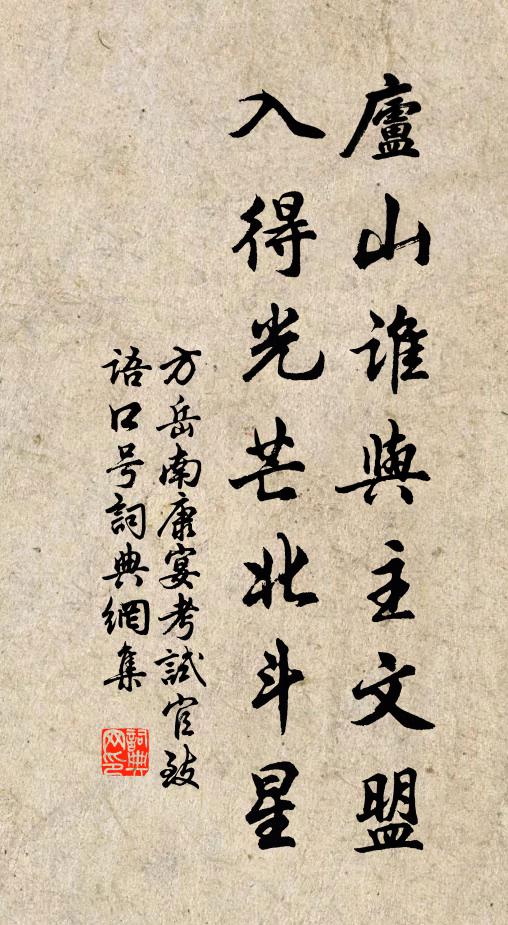 廬山誰與主文盟
入得光芒北斗星
方岳南康宴考試官致
語口号詞典網集
詞典
网印